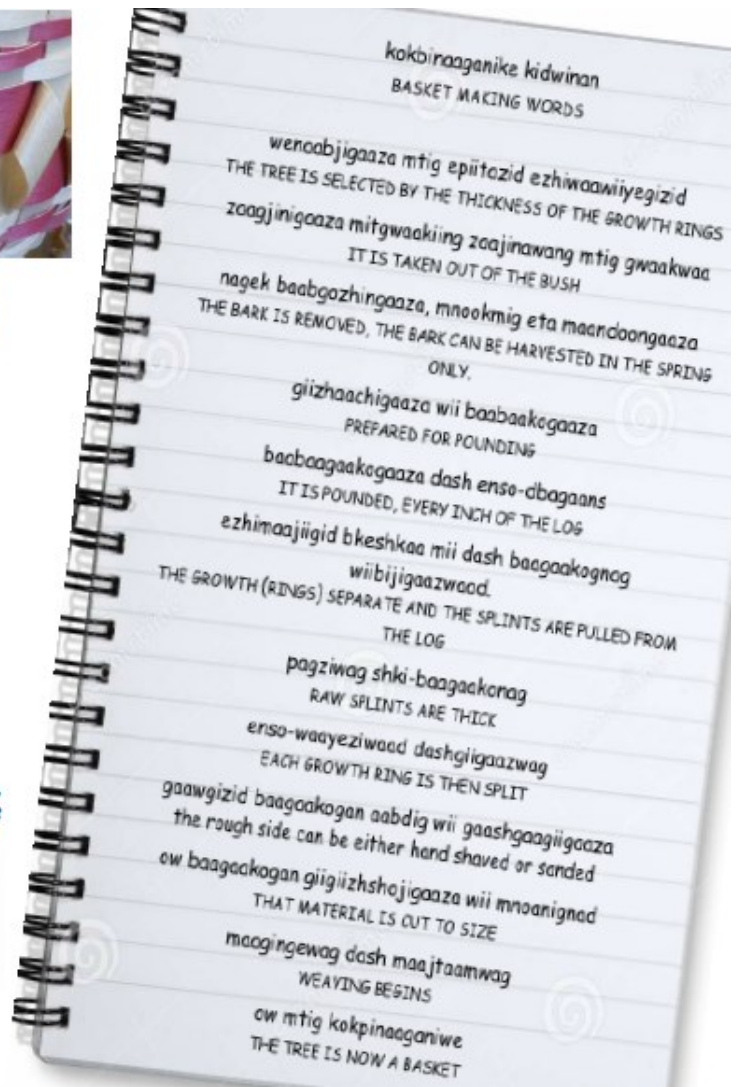 kokbinaaganike kidwinan
BASKET MAKING WORDS
wenaabjigaaza mtig epiitazid ezhiwaawiiyegizid
THE TREE IS SELECTED BY THE THICKNESS OF THE GROWTH RINGS
zaagjinigaaza mitgwaakiing zaajinawang mtig gwaakwaa
IT IS TAKEN OUT OF THE BUSH
nagek baabgozhingaaza, mnookmig eta maandoongaaza
THE BARK IS REMOVED, THE BARK CAN BE HARVESTED IN THE SPRING
ONLY.
giizhaachigaaza wii baabaakogaaza
PREPARED FOR POUNDING
baabaagaakogaaza dash enso-dbagaans
IT IS POUNDED, EVERY INCH OF THE LOG
ezhimaajiigid bkeshkaa mii dash baagaakognag
wiibijigaazwaad.
THE GROWTH (RINGS) SEPARATE AND THE SPLINTS ARE PULLED FROM
THE LOG
pagziwag shki-baagaakonag
RAW SPLINTS ARE THICK
enso-waayeziwaad dashgiigaazwag
EACH GROWTH RING IS THEN SPLIT
gaawgizid baagaakogan aabdig wii gaashgaagiigaaza
the rough side can be either hand shaved or sanded
ow baagaakogan giigiizhshojigaaza wii mnoanignad
THAT MATERIAL IS CUT TO SIZE
maogingewag dash maajtaamwag
WEAVING BEGINS
ow mtig kokpinaaganiwe
THE TREE IS NOW A BASKET